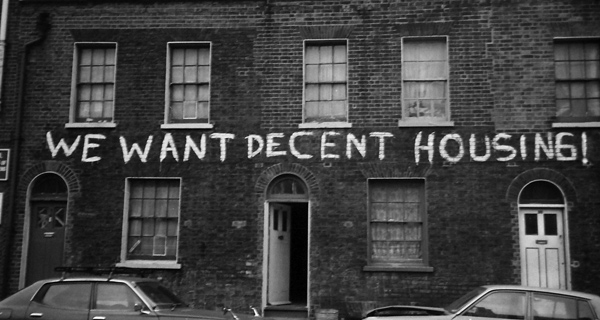 WE WANT DECENT HOUSING!